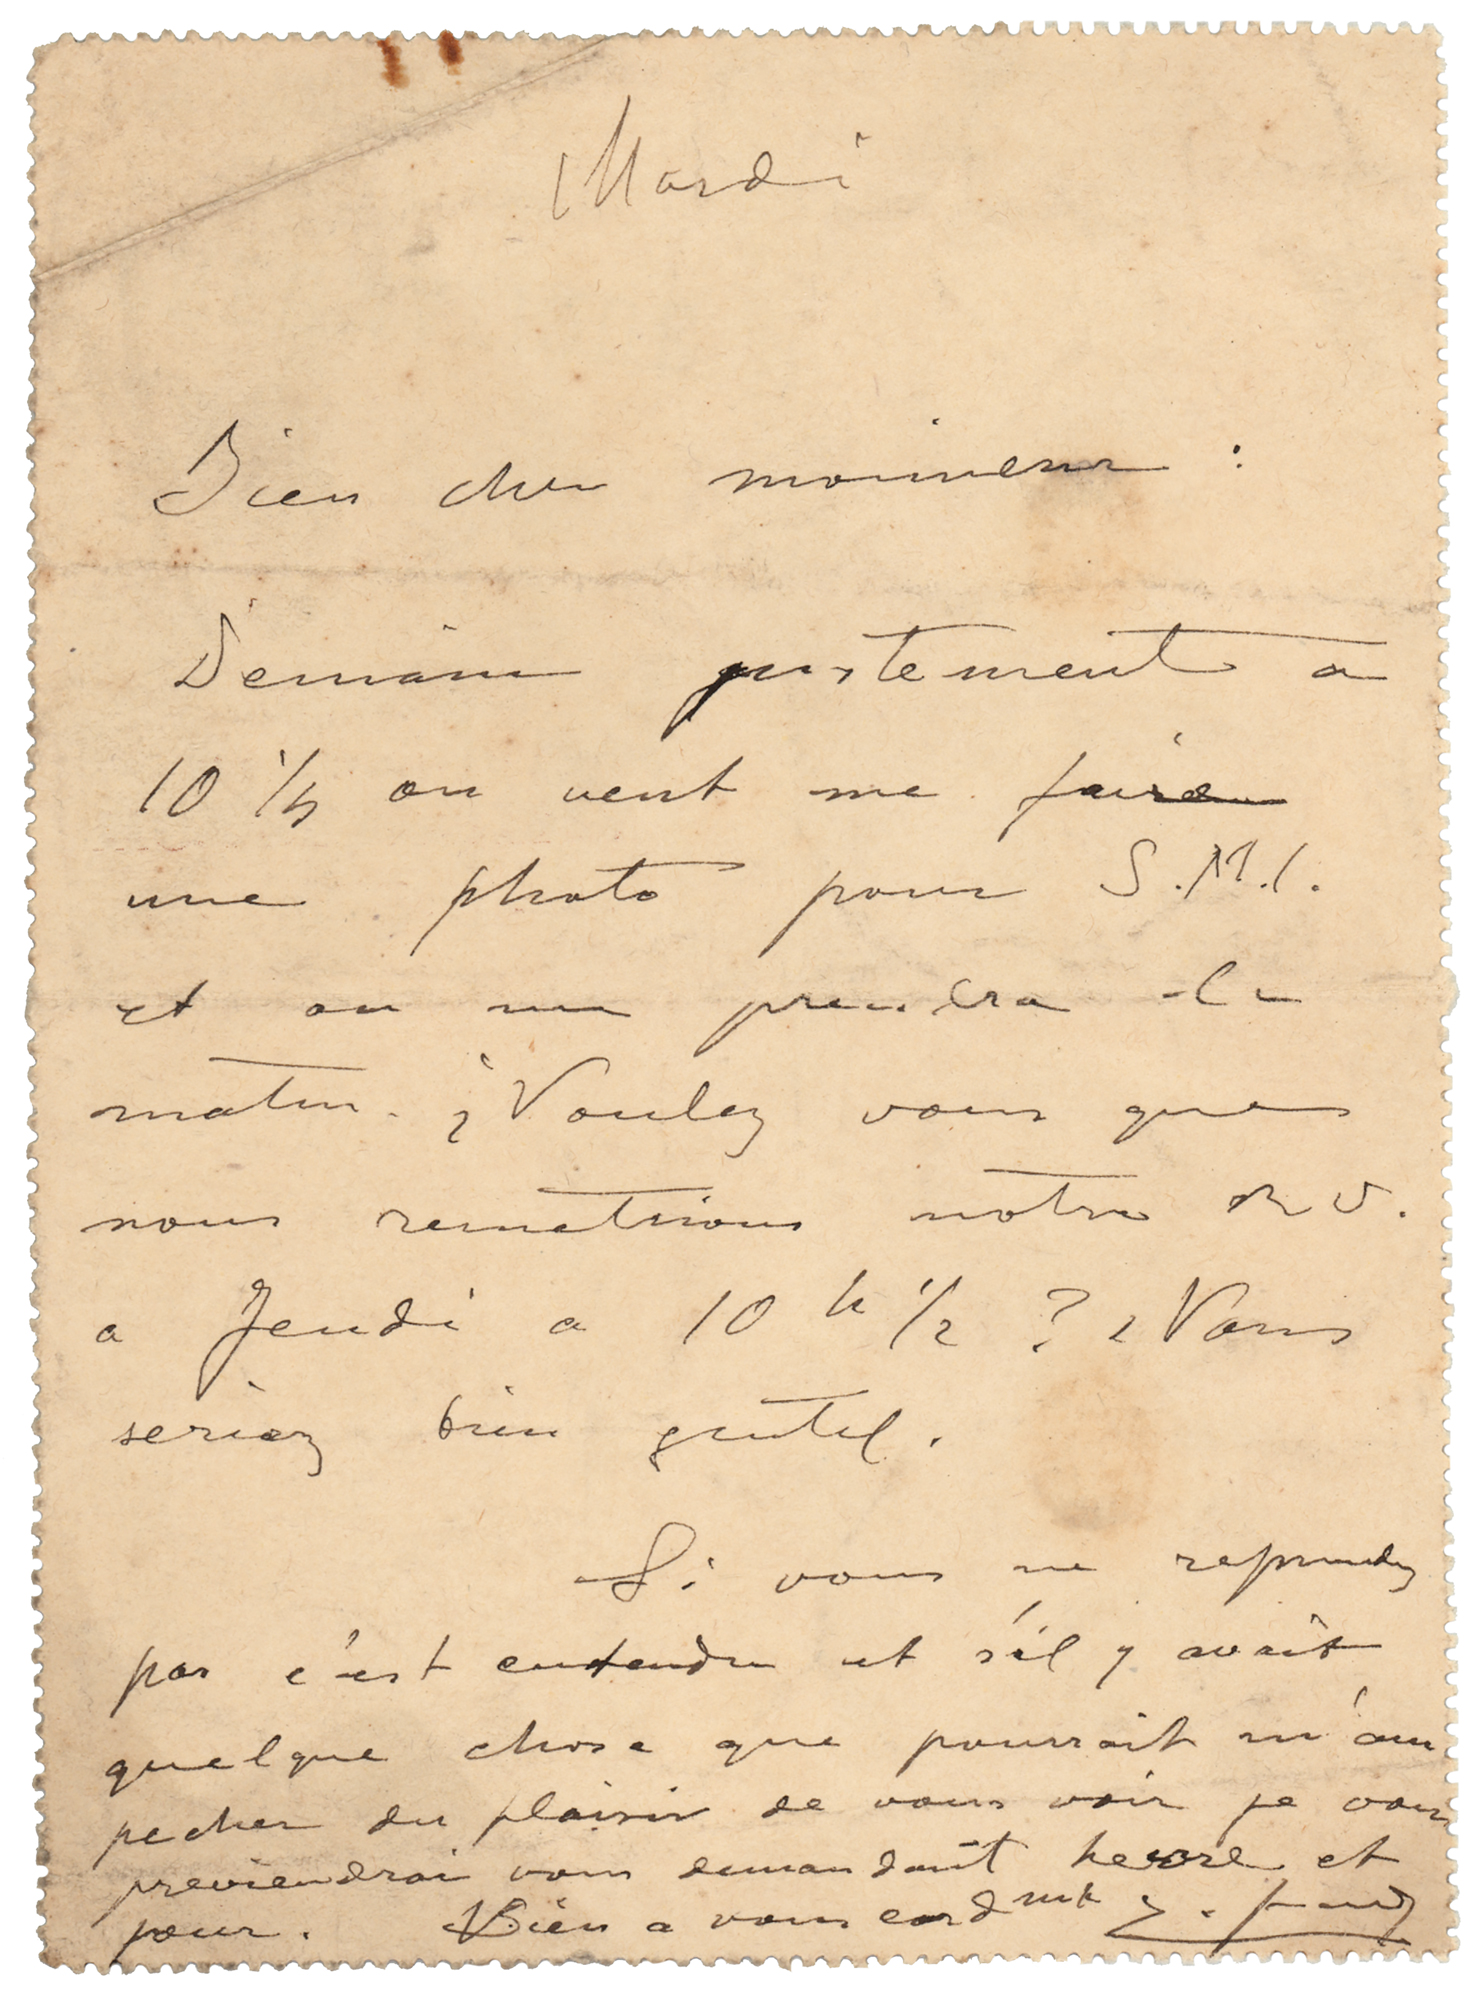 Mardi
Bien cher monsieur :
Demain justement a
10 1/2 on veut me faire
une photo pour S.M.I.
et on me prendra le
matin. ¿Voulez vous que
nous remetions notre R V.
a Jeudi a 10 h 1/2 ? Vous
seriez bien gentil.
Si vous ne repondez
pas c'est entendu et s'il y avait
quelque chose que pourrait m'em
pecher du plaisir de vous voir je vous
previendrai vous demandant heure et
jour. Bien a vous cordmt